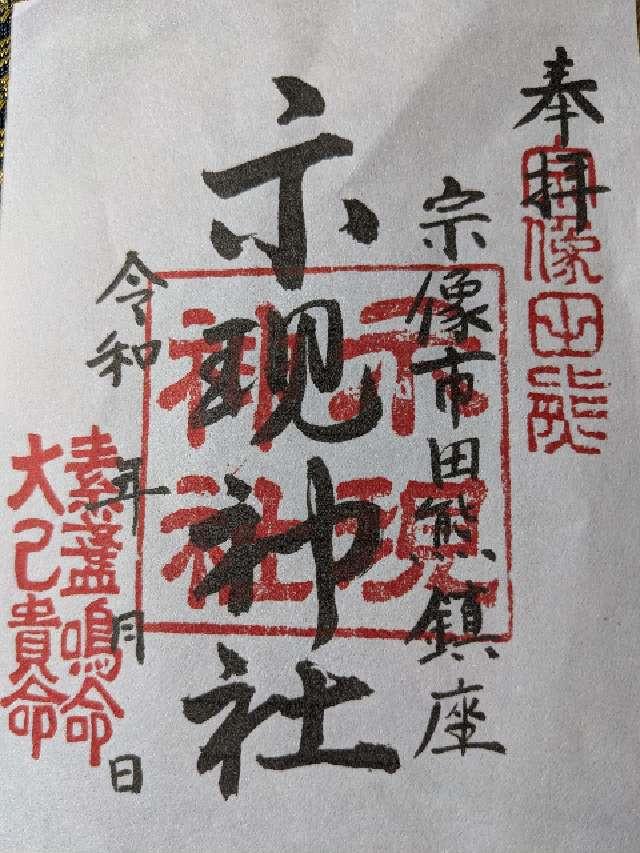 奉拝
宗像田熊
宗像市田熊鎮座
示現神社
示現神社
令和 年 月 日
素盞嗚命
大己貴命